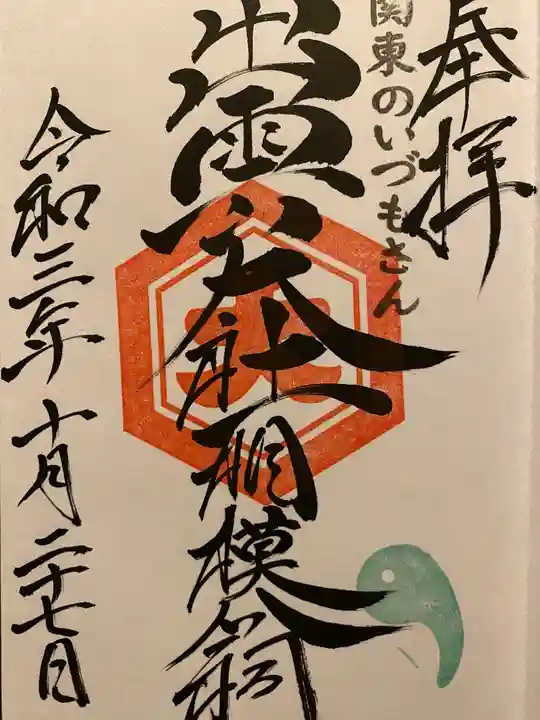 奉拝
関東のいづもさん
出雲大社相模分祠
令和三年十月二十七日
大